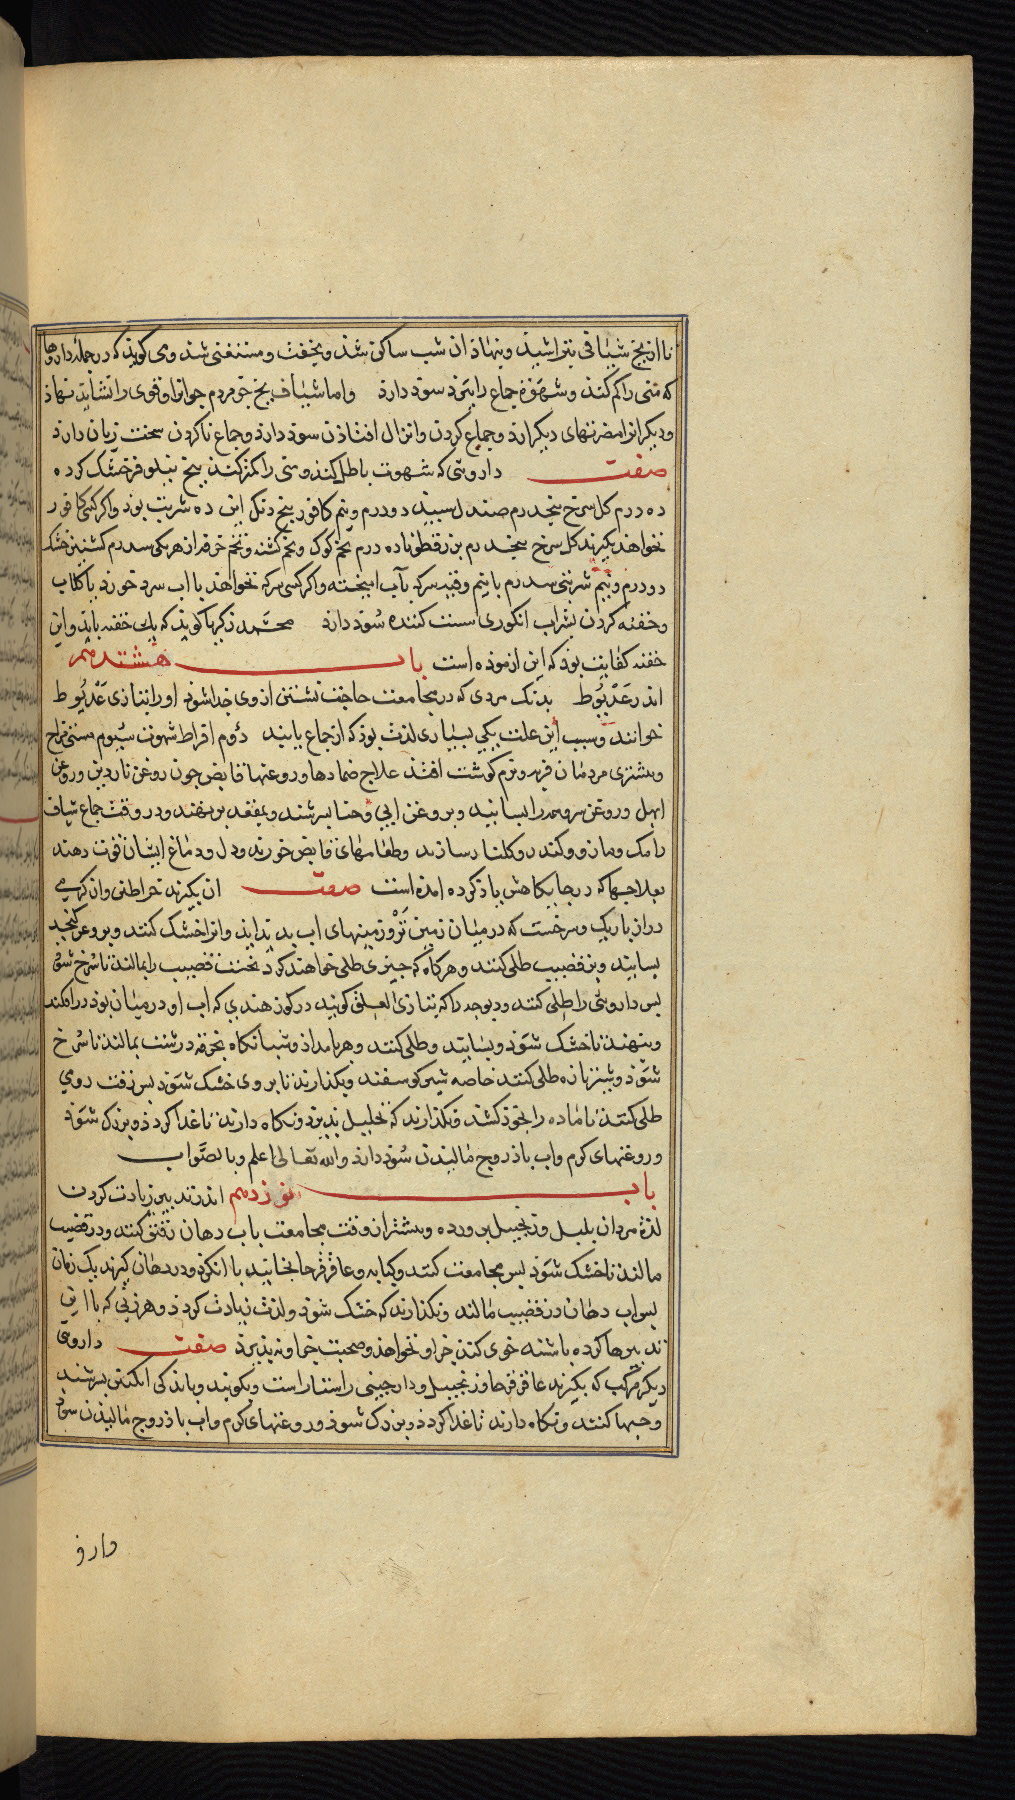 تا از یخ شیافی بتراشید و بنهاد آن شب ساکن شد و بخفت و مستغنی شد و می کویند که در جمله داروها
که منی را کم کند و شهوة جماع را ببرد سود دارد واما شیاف یخ جز مردم جوان و قوی را نشاید نهاذ
و دیکرانرا مضرتهای دیکر ارد و جماع کردن و انزال افتادن سود دارد و جماع ناکردن سخت زیان دارد
صفت داروئی که شهوت باطل کند و منی را کمتر کند بیخ نیلوفر خشک کرده
ده درم کل سرخ پنجدرم صندل سپید دو درم و نیم کافور پنج دنک این ده شربت بود و اکر کسی کافور
نخواهذ بکیرند کل سرخ پنجدرم بزرقطونا ده درم تخم کوک و تخم کشنه و تخم خرفه از هر یکی سدرم کشنیز خشک
دو درم و نیم شربتی سدرم با نیم وقیه سرکه بآب امیخته و اکر کسی سرکه نخواهذ با اب سرد خورد یا کلاب
و حقنه کردن بشراب انکوری سست کننده سود دارد محمد زکریا کوید که پلی حقنه باید و این
حقنه کفایت بود که این ازموده است باب هشتدهم
اندر عَذْیُوط بدنک مردی که در مجامعت حاجت نشستن از وی جدا شوذ او را بتازی عَذْیُوط
خوانند و سبب این علت یکی بسیاری لذت بود که از جماع یابند دوم افراط شهوت سیوم سستی مزاج
و بیشتری مردمان فربه و نرم کوشت افتذ علاج ضمادها و روغنها قابض چون روغن ناردین و روغن
ابهل و روغن سرو بسایند و بروغن و حنا بسرشند و بمقعد برنهند و در وقت جماع شیاف
رامک و مازو و کندر و کلنار سازند و طعامهای قابض خورند و دل و دماغ ایشان قوت دهند
بعلاجها که در جایکاهش یاذ کرده امده است صفت ان بکیرند خراطین و ان کرمی
دراز باریک و سرخست که در میان زمین تَرْ و زمینهای اب بدید اید و انرا خشک کنند و بروغن کنجد
بسایند و بر قضیب طلی کنند و هرکاه که چیزی طلی خواهند کرد نخست قضیب را بمالند تا سُرخ شود
پس داروئی را طلی کنند و دیوجه را که بتازی العلق کویند در کوز هندی که اب او در میان بود درافکنند
و بنهند تا خشک شَوذ و بسایند و طلی کنند و هر بامداذ و شبانکاه بخرقه درشت بمالند تا سُرخ
شَوذ و شیر تازه طلی کنند خاصه شیر کوسفند و بکذارند تا بر وی خشک شَوَد پس زفت رومی
طلی کنند تا ماده را بخوذ کشد و نکذارند که تحلیل پذیرد و نکاه دارند تا غذا کردد و بزرک شَوَذ
و روغنهای کرم و اب باذروج مالیدن سُود دارد والله تعالی اعلم و بالصَّواب
باب نوزدهم اندر تدبیر زیادت کردن
لذة مردان پلپل و زنجبیل پرورده و بیشتر ان وقت مجامعت باب دهان تقتق کنند و در قضیب
مالند تا خشک شَوَد پس مجامعت کنند و کبابه و عاقرقرحا بخایند با انکزد و در دهان کیرند یک زمان
پس اب دهان در قضیب مالند و بکذارند که خشک شوذ و لذت زیادت کردد و هر زنی که با این
تدبیرها کرده باشند خوی کند جز او نخواهد و صحبت جز او نپذیرد صفت داروئی
دیکر مرکب که بکیرند عاقرقرحا و زنجبیل و دارچینی راستاراست و بکوبند و باندکی انکبین بسرشند
و حبها کنند و نکاه دارند تا غذا کردد و بزرک شَوذ و روغنهای کرم واب باذروج مالیدن سود
دارد